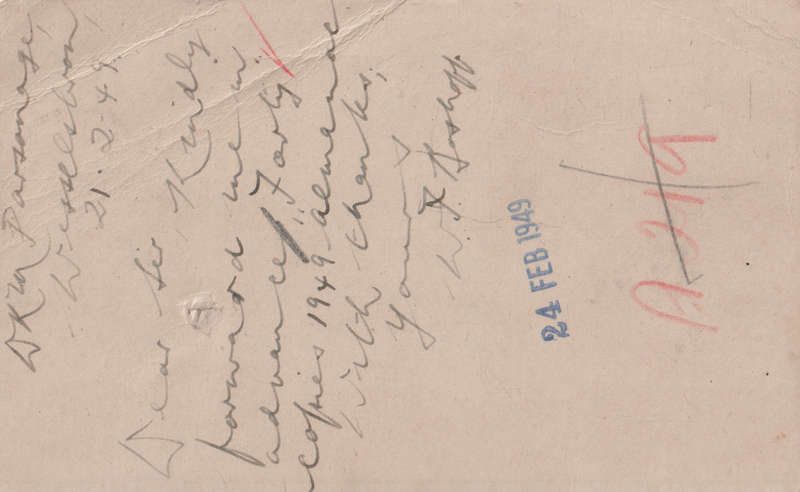 DRM Parsonage,
Wesselsbron
21-2-49.
Dear Sir, Kindly
forward me in
advance, Forty
copies 1949 almanac
With thanks,
Yours
W. F. Boshoff.
24 FEB 1949
A 219